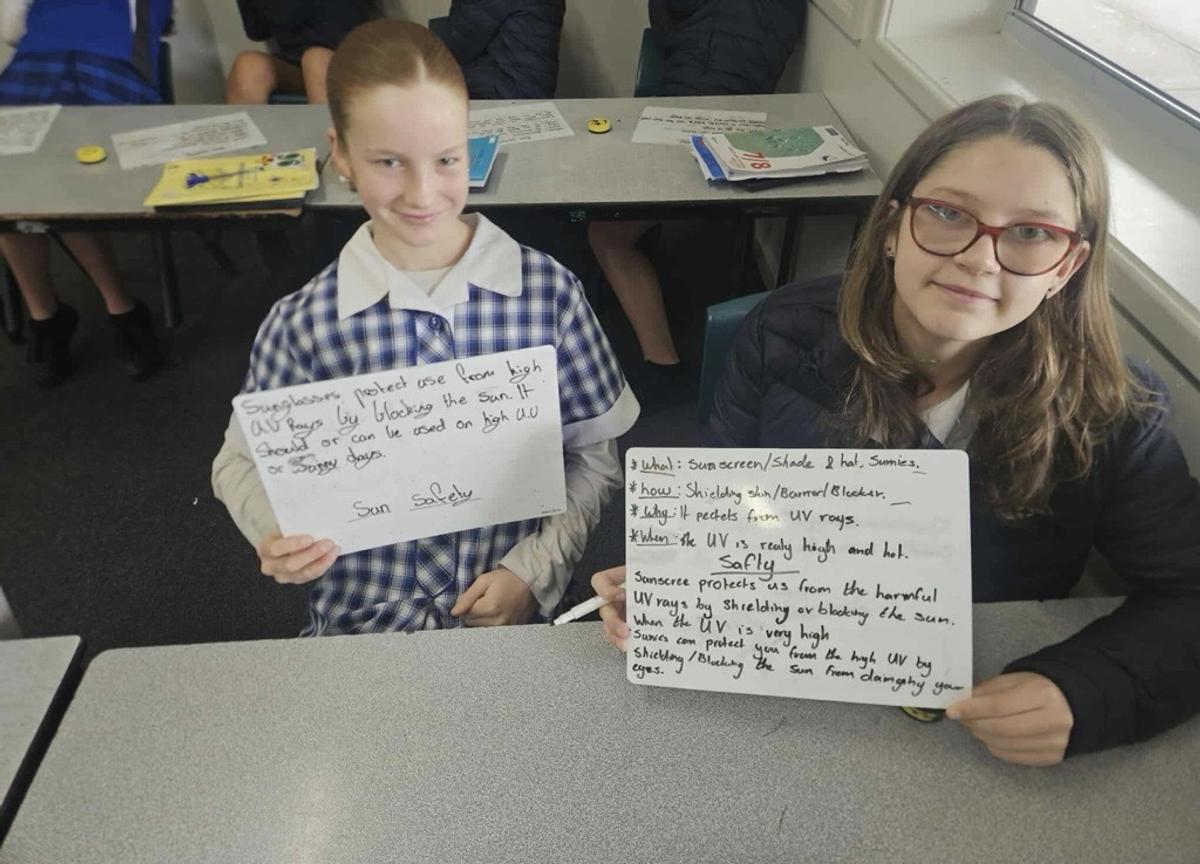 Sunglasses protect use from high
UV Rays by blocking the sun. It
Should or can be used on high U.V
or warm days.
Sun Safety
*What: Sunscreen/Shade & hat, Sunnies.
*how: Shielding skin/Barrier/Blocker.
*Why: It pectets from UV rays.
*When: the UV is realy high and hot.
Safty
Sunscree protects us from the harmful
UV rays by shielding or blocking the sun.
When the UV is very high
Sunies can protect you from the high UV by
Shielding/Blocking the sun from damgahy your
eyes.
7/8